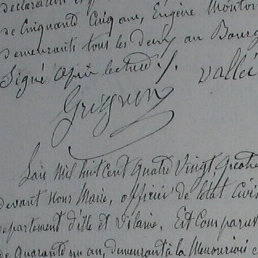 de Cinquante Cinq ans, Eugène
demeurants tous les deux au Bourg
Signé après lecture. vallée
L'an Mil huit cent quatre Vingt quatre
devant nous Maire, officier de l'état Civil
département d'Ille et Vilaine, Est Comparu
de quarante un ans, demeurant à la